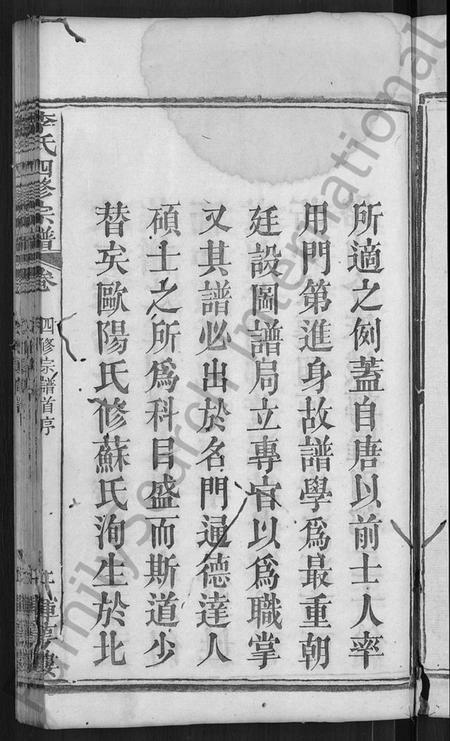 所適之例蓋自唐以前士人率
用門第進身故譜學爲最重朝
廷設圖譜局立專官以爲職掌
又其譜必出於名門通德達人
碩士之所爲科目盛而斯道少
替矣歐陽氏修蘇氏洵生於北
李氏四修宗譜
卷
四修宗譜首序
FamilySearch International